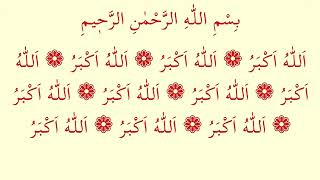 بِسْمِ اللّٰهِ الرَّحْمٰنِ الرَّحٖيمِ
اَللّٰهُ اَكْبَرُ ❁ اَللّٰهُ اَكْبَرُ ❁ اَللّٰهُ اَكْبَرُ ❁ اَللّٰهُ
اَكْبَرُ ❁ اَللّٰهُ اَكْبَرُ ❁ اَللّٰهُ اَكْبَرُ ❁ اَللّٰهُ اَكْبَرُ
❁ اَللّٰهُ اَكْبَرُ ❁ اَللّٰهُ اَكْبَرُ ❁ اَللّٰهُ اَكْبَرُ